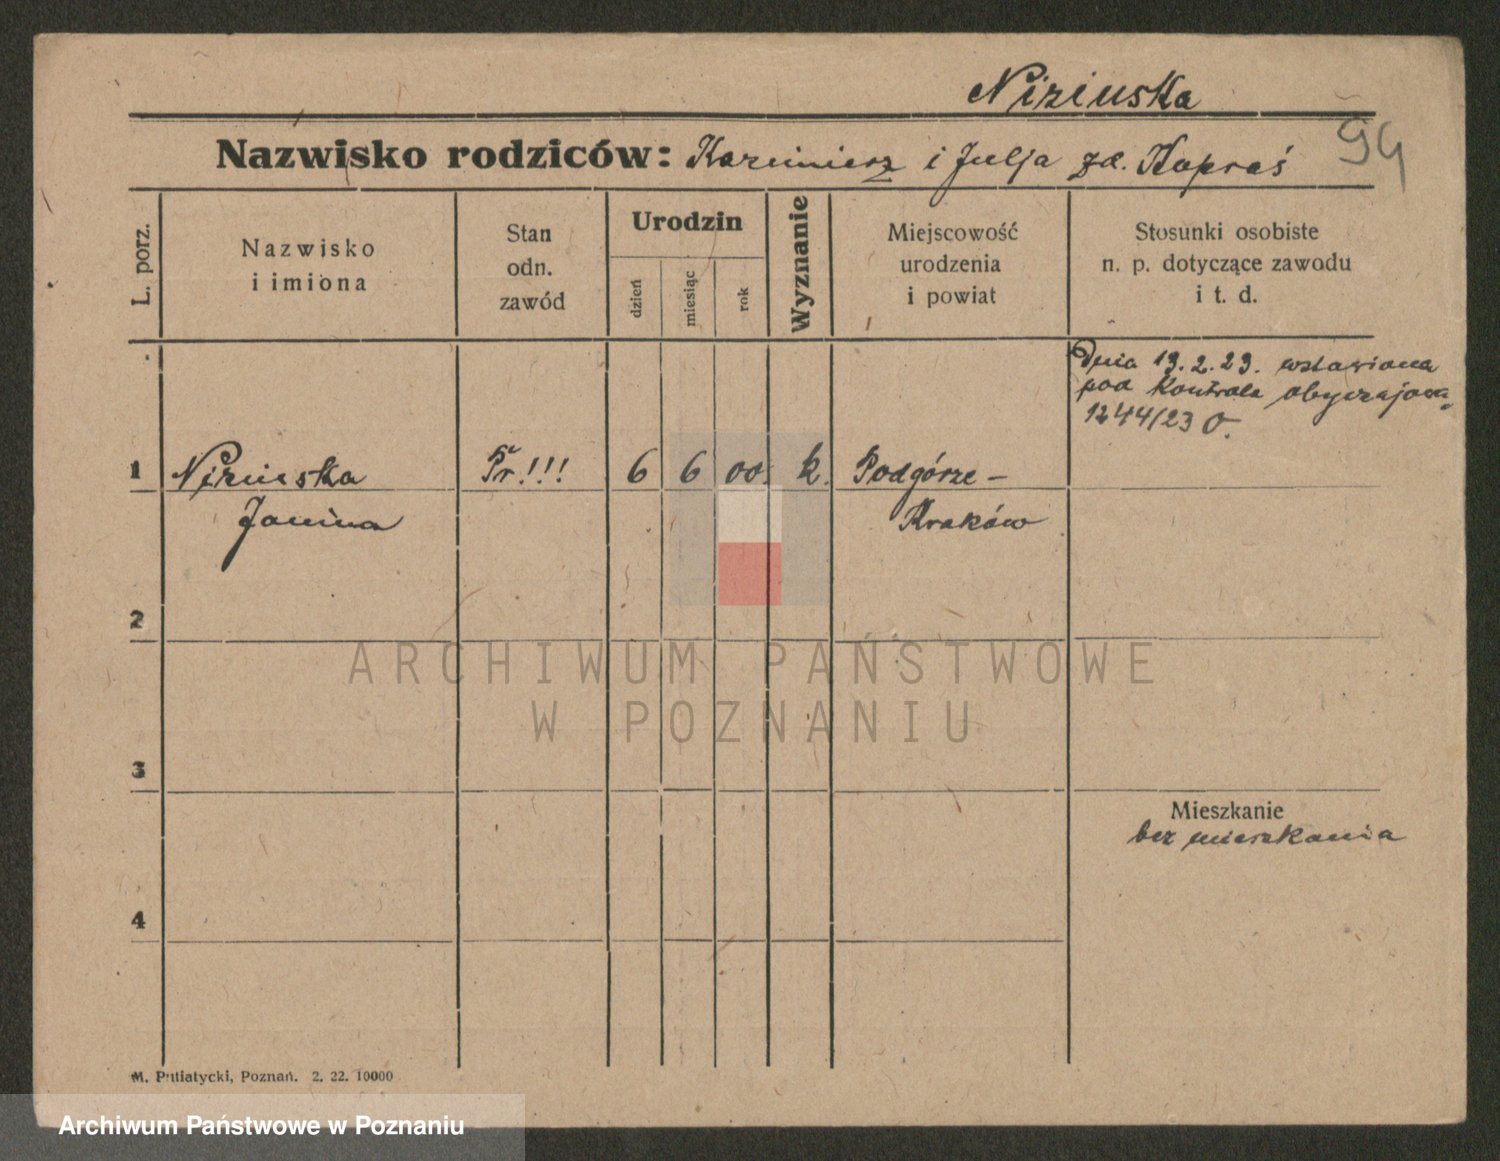 Niziuska
Nazwisko rodziców: Kazimierz i Julja zd. Kapraś
94
L. porz.
Nazwisko
i imiona
Stan
odn.
zawód
Urodzin
dzień
miesiąc
rok
Wyznanie
Miejscowość
urodzenia
i powiat
Stosunki osobiste
n. p. dotyczące zawodu
i t. d.
Dnia 13.2.23. wstawiona
pod kontrole obyczajową
1244/23
1 Niziuska Pr.!!! 6 6 00. k. Podgórze –
Janina Kraków
2
3
Mieszkanie
bez mieszkania
4
M. Putiatycki, Poznań. 2. 22. 10000
ARCHIWUM PAŃSTWOWE
W POZNANIU
Archiwum Państwowe w Poznaniu